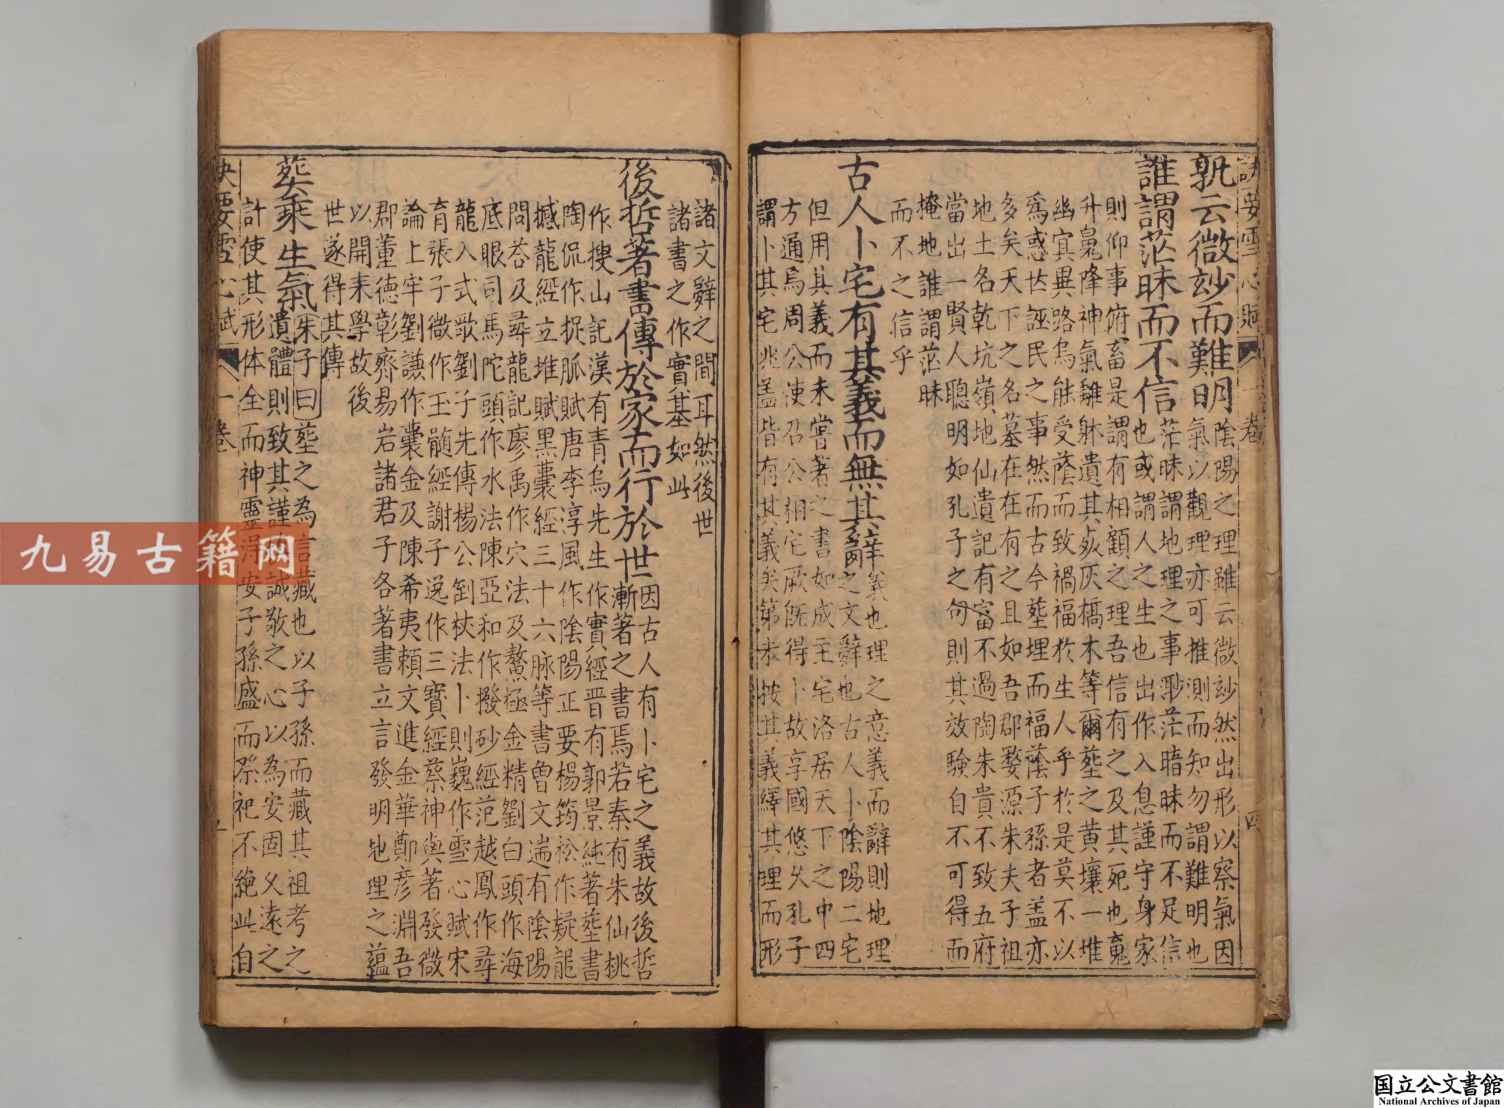 訣要雪心賦 一卷 四
孰云微妙而難明陰陽之理雖云微玅然出形以察氣因
氣以觀理亦可推測而知勿謂難明也
誰謂茫昧而不信茫昧謂地理之事渺茫暗昧而不足信
也或謂人之生也出作入息謹守身家
則仰事俯畜是謂有相顧之理吾信有之及其死也䰟
升䰟降神氣離躰遺其炭灰槁木等爾塟之黃壤一堆
幽㝠異路烏能受蔭而致禍福扵生人乎扵是莫不以
爲惑世誣民之事然而古今塟埋而福蔭子孫者盖亦
多矣天下之名墓在在有之且如吾郡婺源朱夫子祖
地土名乾坑嶺地仙遺記有富不過陶朱貴不致五府
當出一賢人聰明如孔子之句則其效驗自不可得而
掩地誰謂茫昧
而不之信乎
古人卜宅有其義而無其辭義也理之意義而辭則地理
之文辭也古人卜陰陽二宅
但用其義而未嘗著之書如成王宅洛居天下之中四
方通焉周公使召公相宅厥既得卜故享國悠久孔子
謂卜其宅兆盖皆有其義矣第求按其義繹其理而形
諸文辭之間耳然後世
諸書之作實基如此
後哲著書傳於家而行於世因古人有卜宅之義故後哲
漸著之書焉若秦有朱仙桃
作搜山記漢有青烏先生作實經晋有郭景純著塟書
陶侃作捉脈賦唐李淳風作陰陽正要楊筠松作疑龍
撼龍經立堆賦黑囊經三十六脉等書曾文遄有陰陽
問荅及尋龍記廖禹作穴法及鰲極金精劉白頭作海
底眼司馬陀頭作水法陳亞和作撥砂經范越鳳作尋
龍入式歌劉子先傳楊公倒杖法卜則巍作雪心賦宋
育張子微作玉髓經謝子逸作三寶經蔡神與著發微
論上牢劉謙作囊金及陳希夷賴文進金華鄭彦淵吾
郡董德彰齊易岩諸君子各著書立言發明地理之蘊
以開来學故後
世遂得其傳
塟乘生氣朱子曰塟之為言藏也以子孫而藏其祖考之
遺體則致其謹誠敬之心以為安固久遠之
計使其形体全而神靈得安子孫盛而祭祀不絶此自
訣要雪心賦 一卷
九易古籍网
国立公文書館
National Archives of Japan